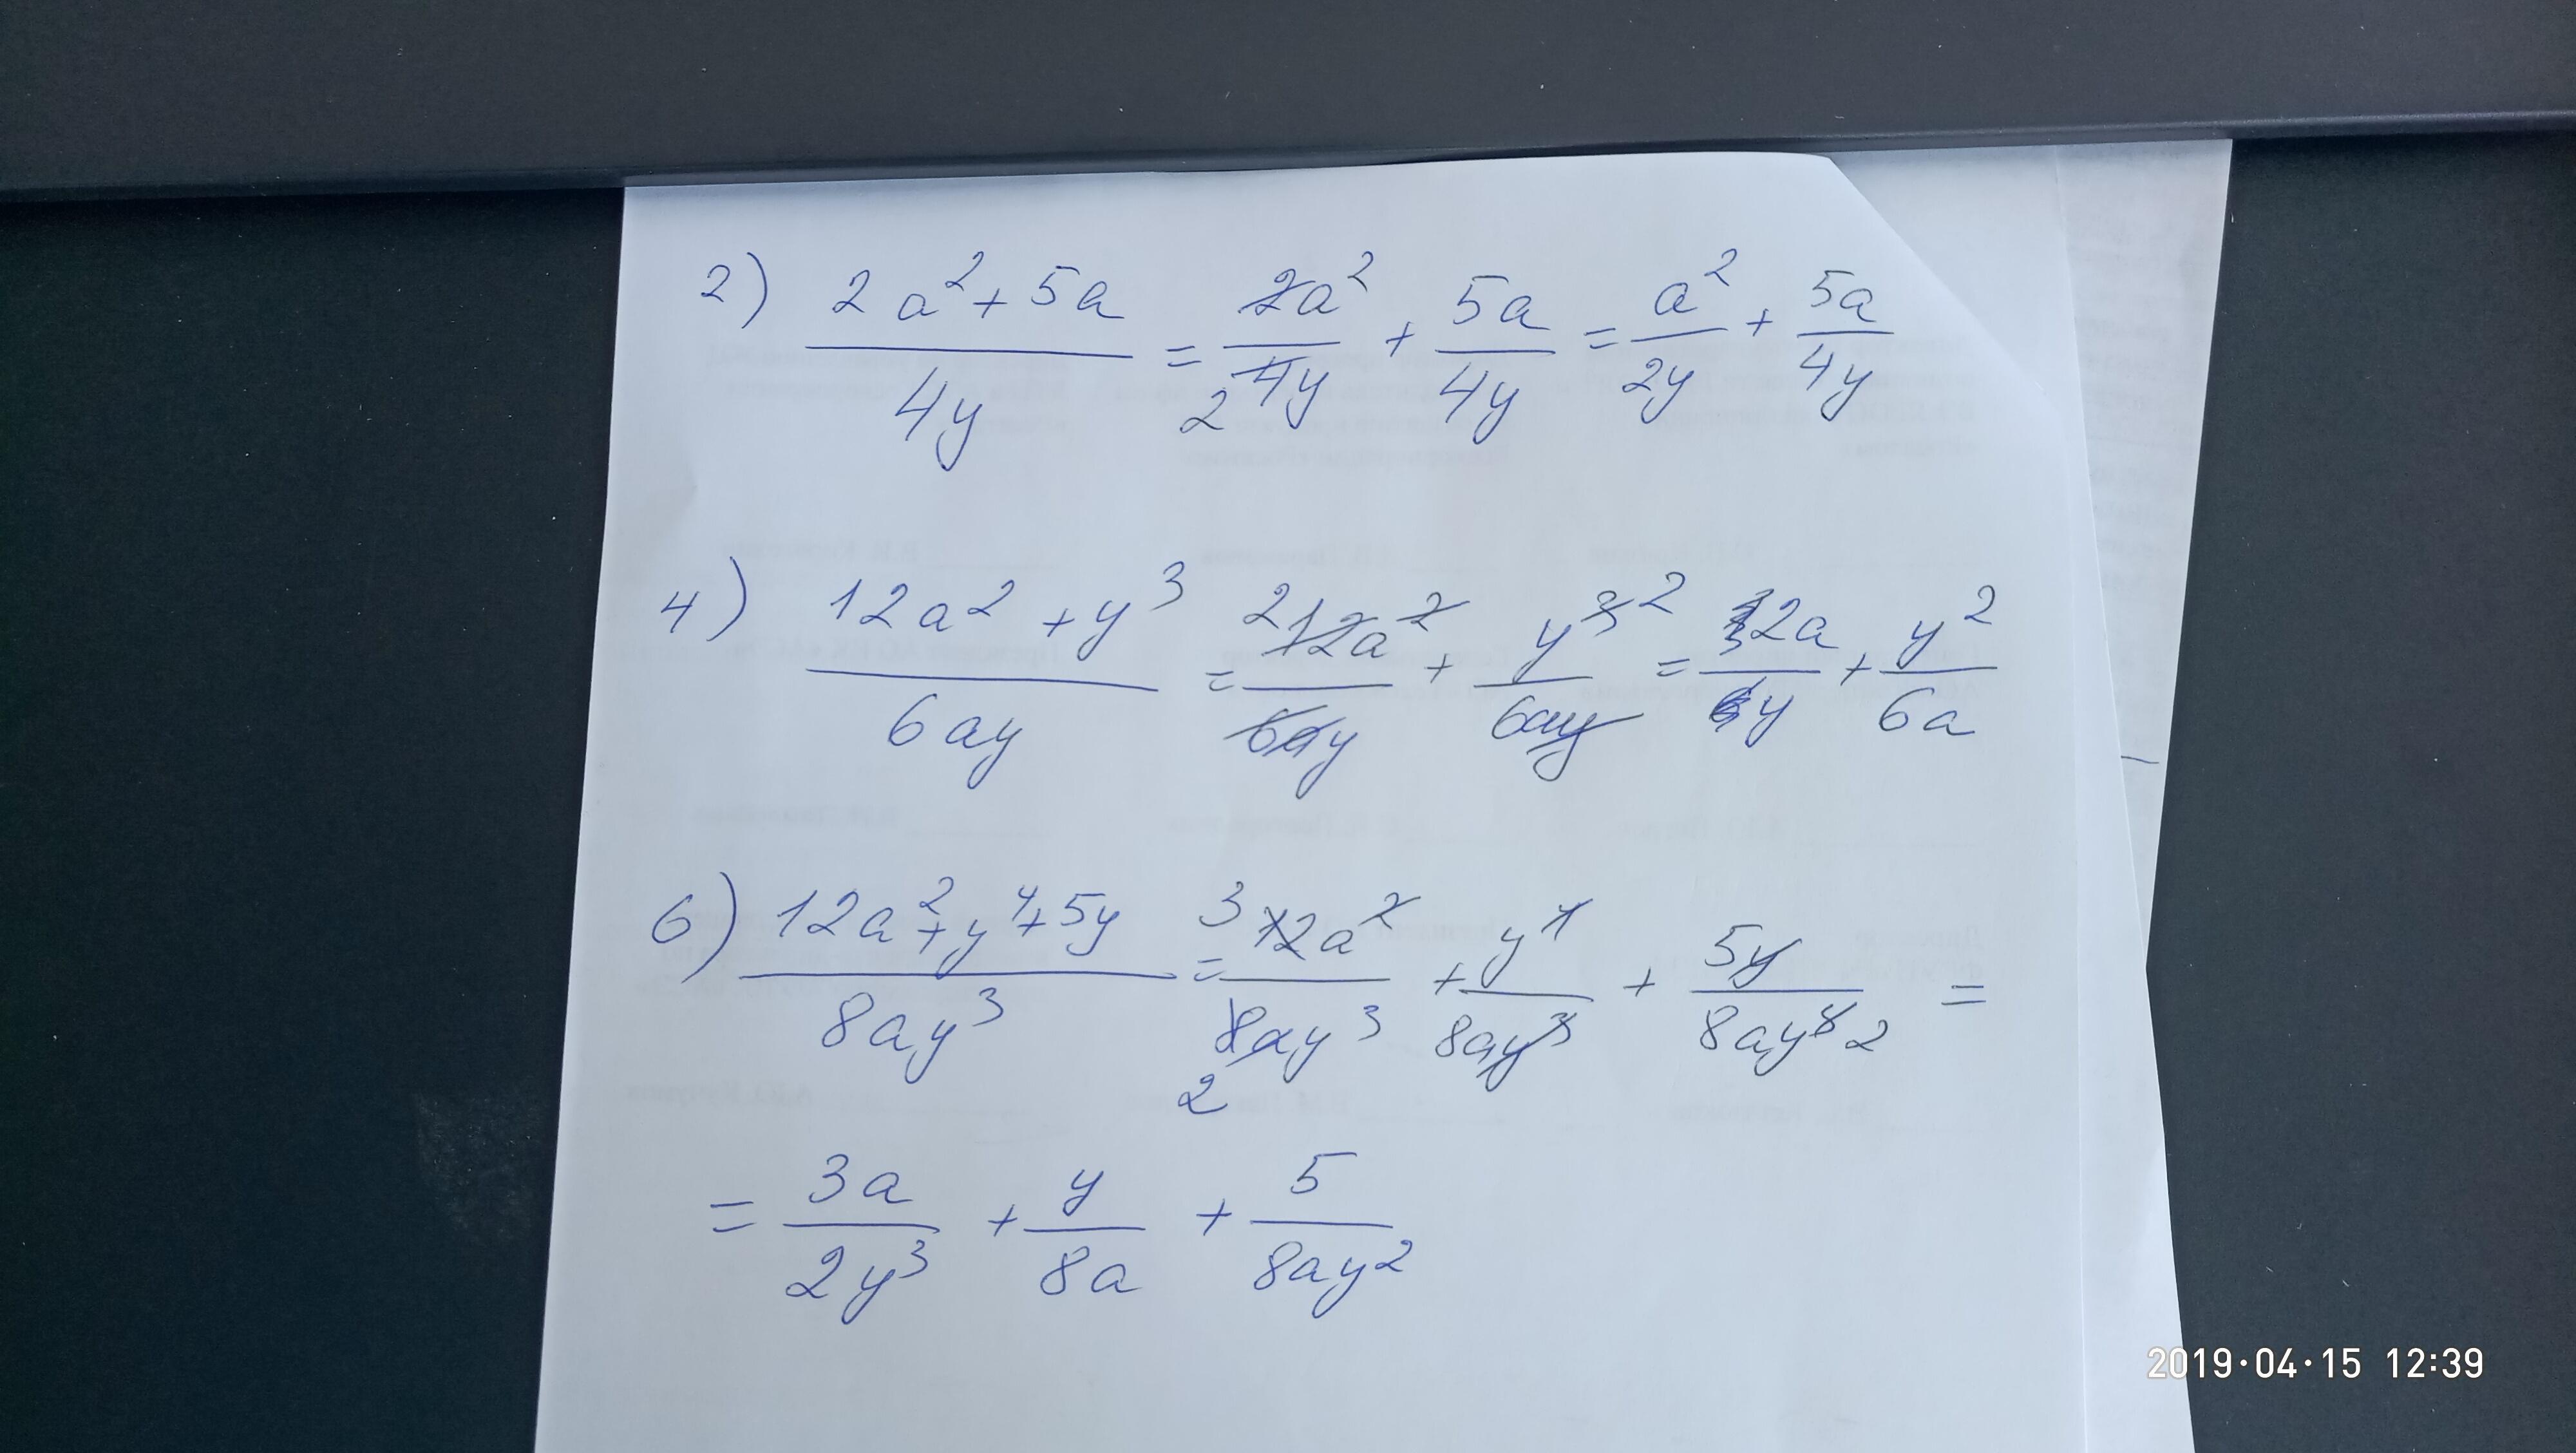 2) (2a² + 5a)/(4y) = (2a²)/(4y) 2 + (5a)/(4y) = (a²)/(2y) + (5a)/(4y)
4) (12a² + y³)/(6ay) = 2 (12a²)/(6ay) + (y³ 2)/(6ay) = (2a)/(y) + (y²)/(6a)
6) (12a² + y⁴ + 5y)/(8ay³) = 3 (12a²)/(8ay³) 2 + (y⁴)/(8ay³) + (5y)/(8ay³ 2) =
= (3a)/(2y³) + (y)/(8a) + (5)/(8ay²)
2019·04·15 12:39